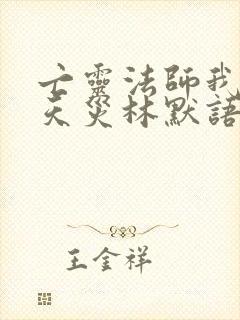 亡靈法師我
天災林默語
王金祥